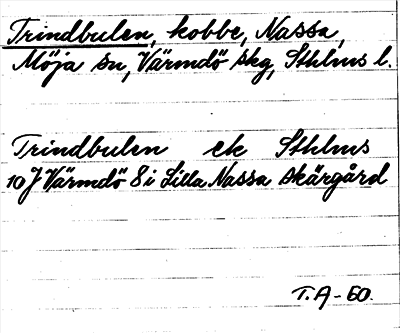 Trindbulen, kobbe, Nassa,
Möja sn, Värmdö skg, Sthlms l.
Trindbulen ek Sthlms
10 J Värmdö 8 i Lilla Nassa skärgård
T.A-60.